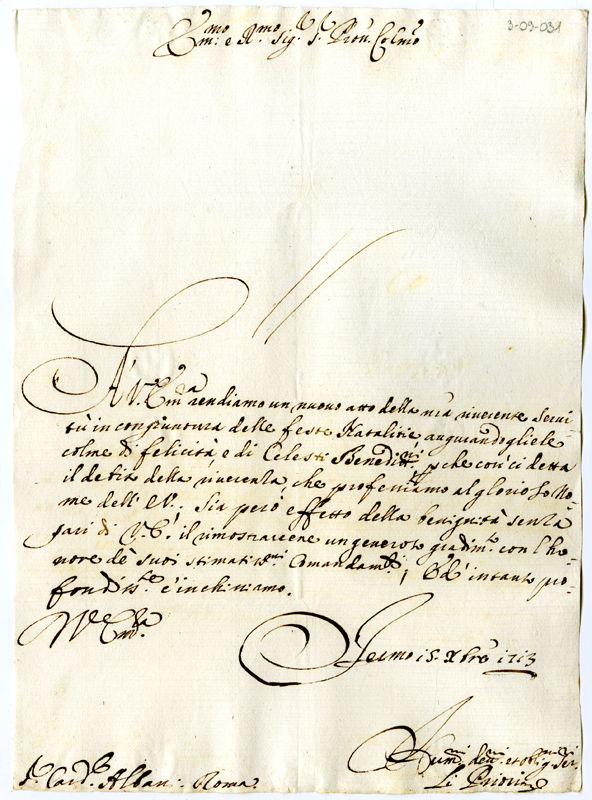 3-09-031
Em:mo e R.mo Sig.r S.r Pron. Colmo
A V. Em.a rendiamo un nuovo atto della n̄ra riverente Servi-
tù in congiuntura delle feste Natalitie, augurandogliele
colme di felicità, e di Celesti Beneditt.ni, p̄che così ci detta
il debito della riverenza, che professiamo al glorioso No-
me dell'E.V.. Sia però effetto della benignità senza
pari di V.E. il rimostrarcene un generoso gradim.to con l'ho-
nore dè suoi stimatiss.mi Comandam.ti; Et d'intanto pro-
fondiss.te c'inchiniamo.
Di V.E Em.za
Fermo 15. Xbre 1713
Hum.mi dev.mi et oblig.mi Ser.ri
Li Priori
S.r Card.le Albani. Roma.